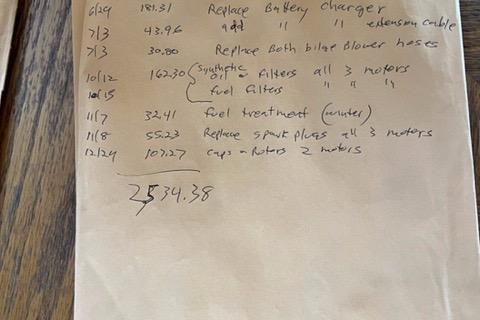 6/29 181.31 Replace Battery charger
7/3 43.96 add " " extension cable
7/3 30.80 Replace Both bilge Blower hoses
10/12 162.30 { synthetic oil & Filters all 3 motors
10/15 fuel filters " " "
11/7 32.41 fuel treatment (winter)
11/8 55.23 Replace spark plugs all 3 motors
12/24 107.27 caps & Rotors 2 motors
2534.38